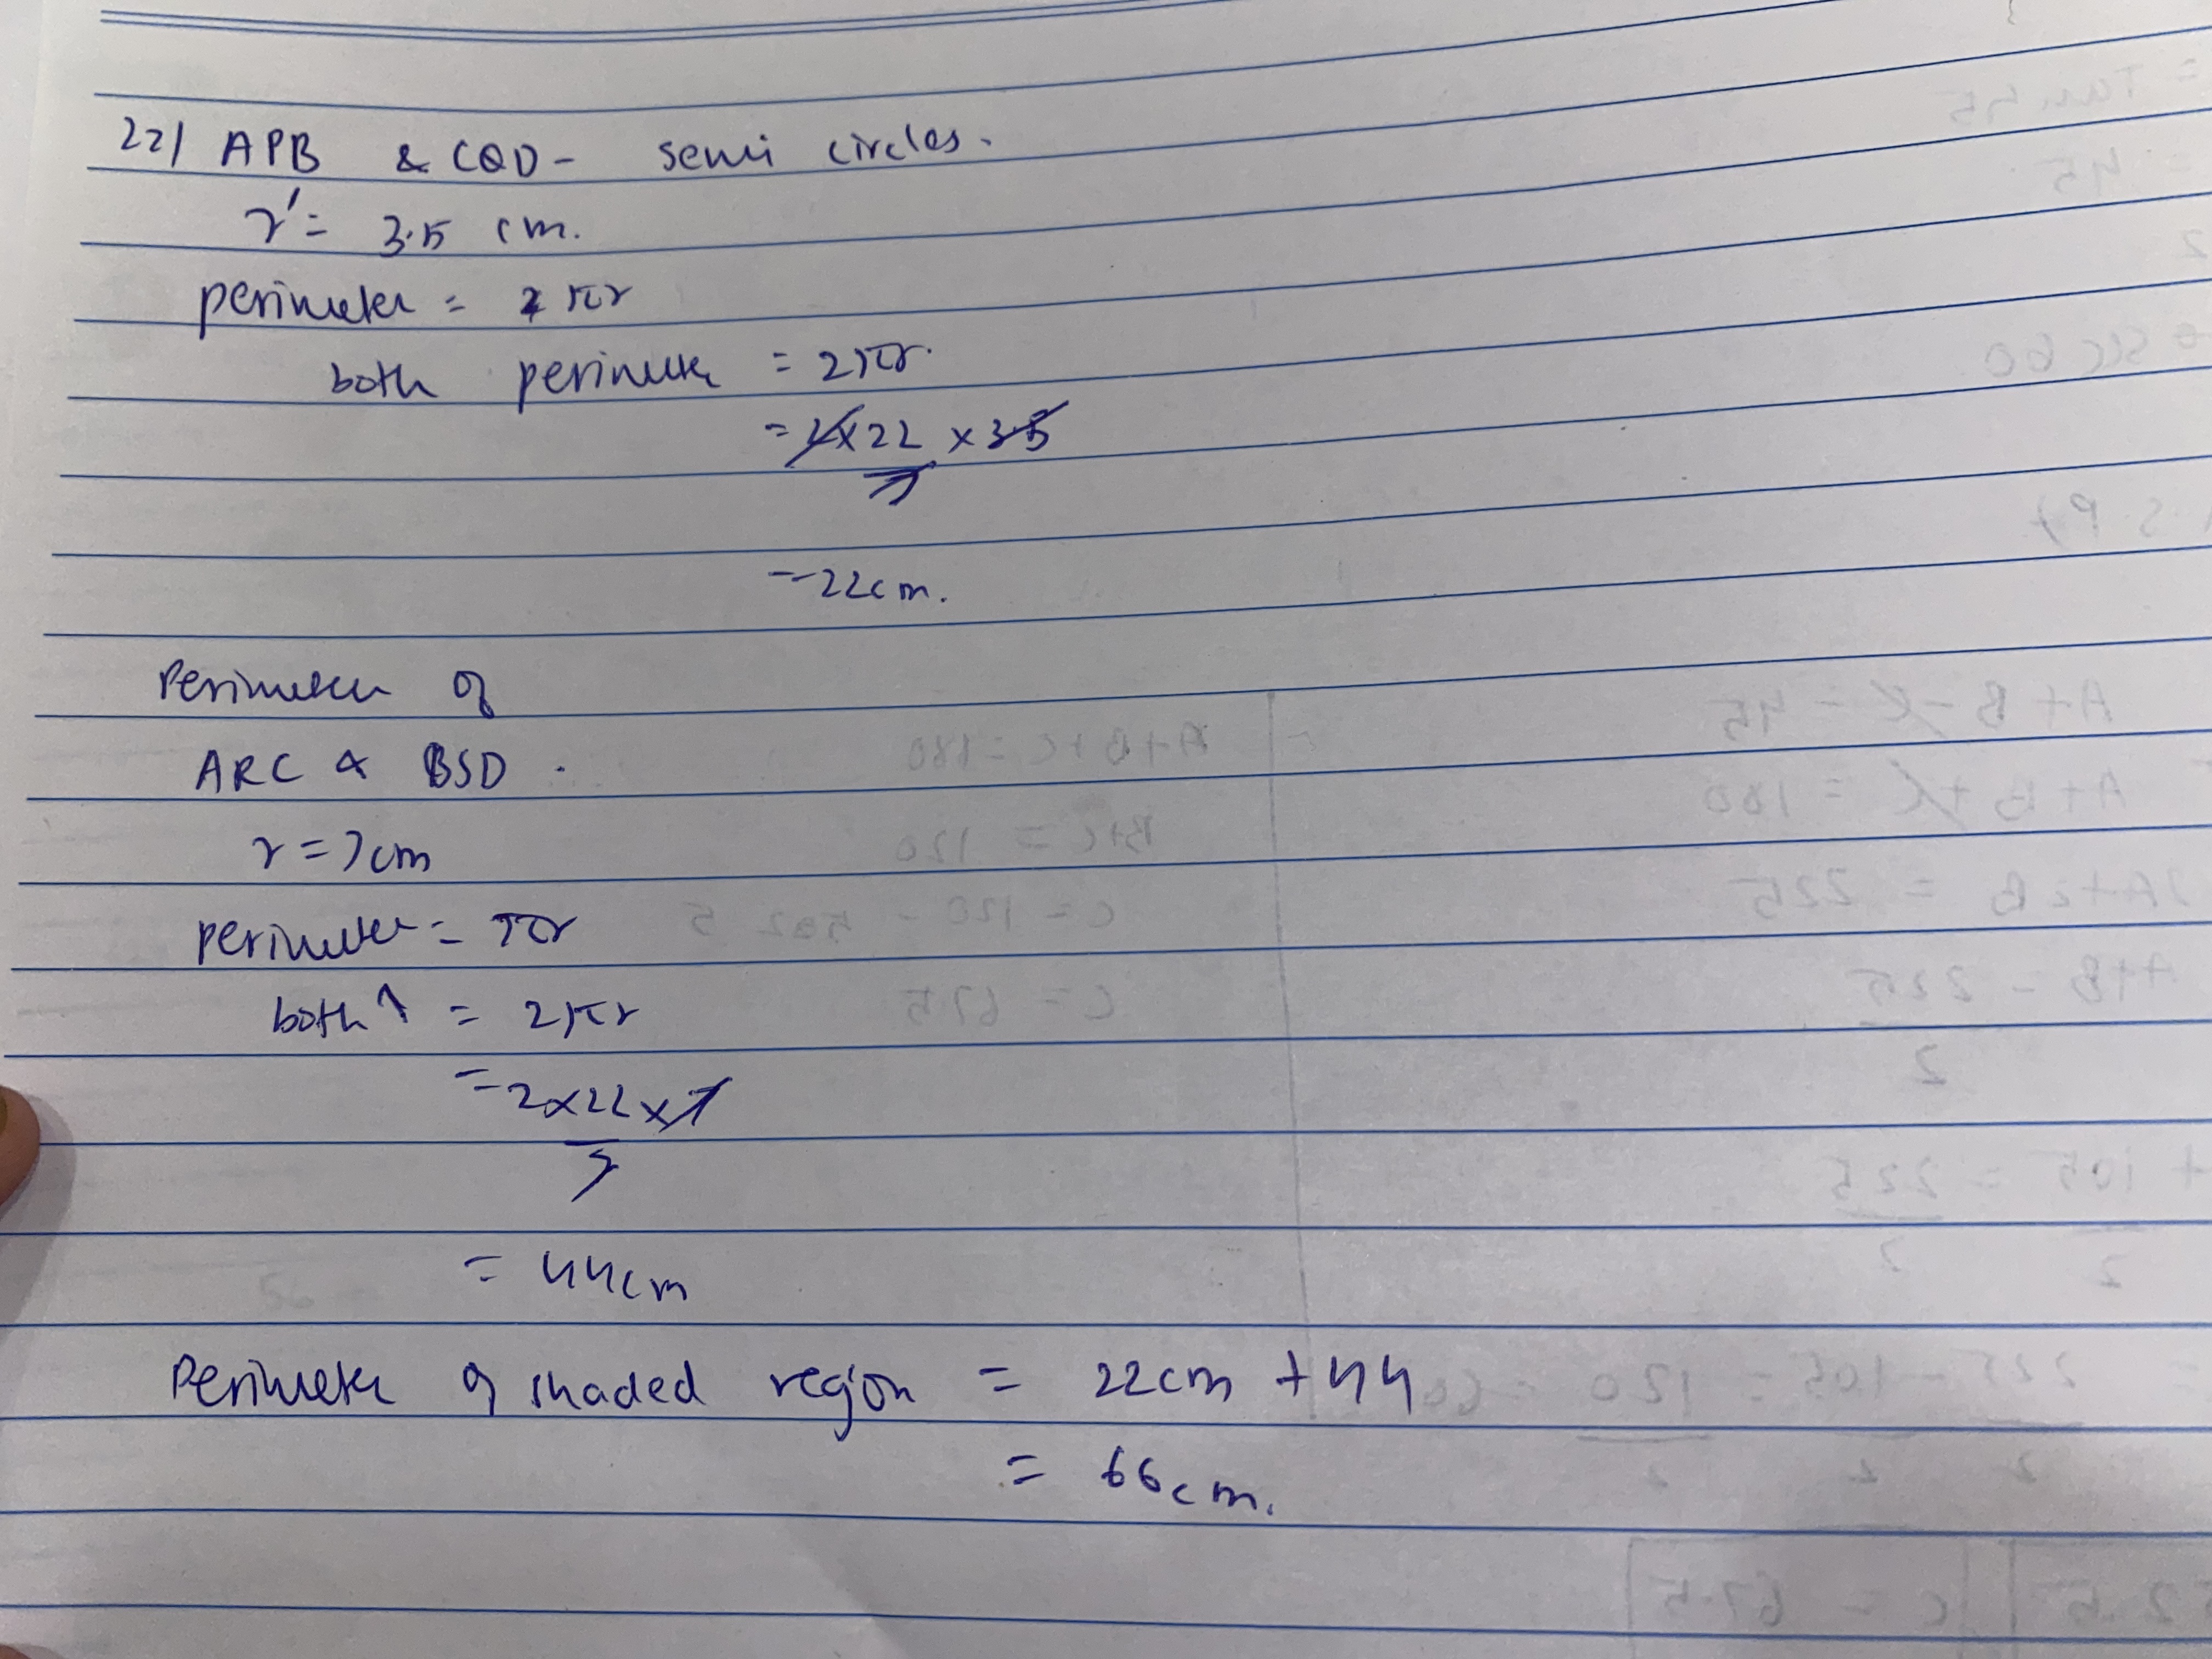 22) APB & CQD - semi circles.
r' = 3.5 cm.
perimeter = πr
both perimeter = 2πr.
= 2 x 22 x 3.5
7
= 22cm.
Perimeter of
ARC & BSD.
r = 7cm
perimeter = πr
both ↑ = 2πr
= 2x22x7
7
= 44cm
Perimeter of shaded region = 22cm + 44
= 66cm.